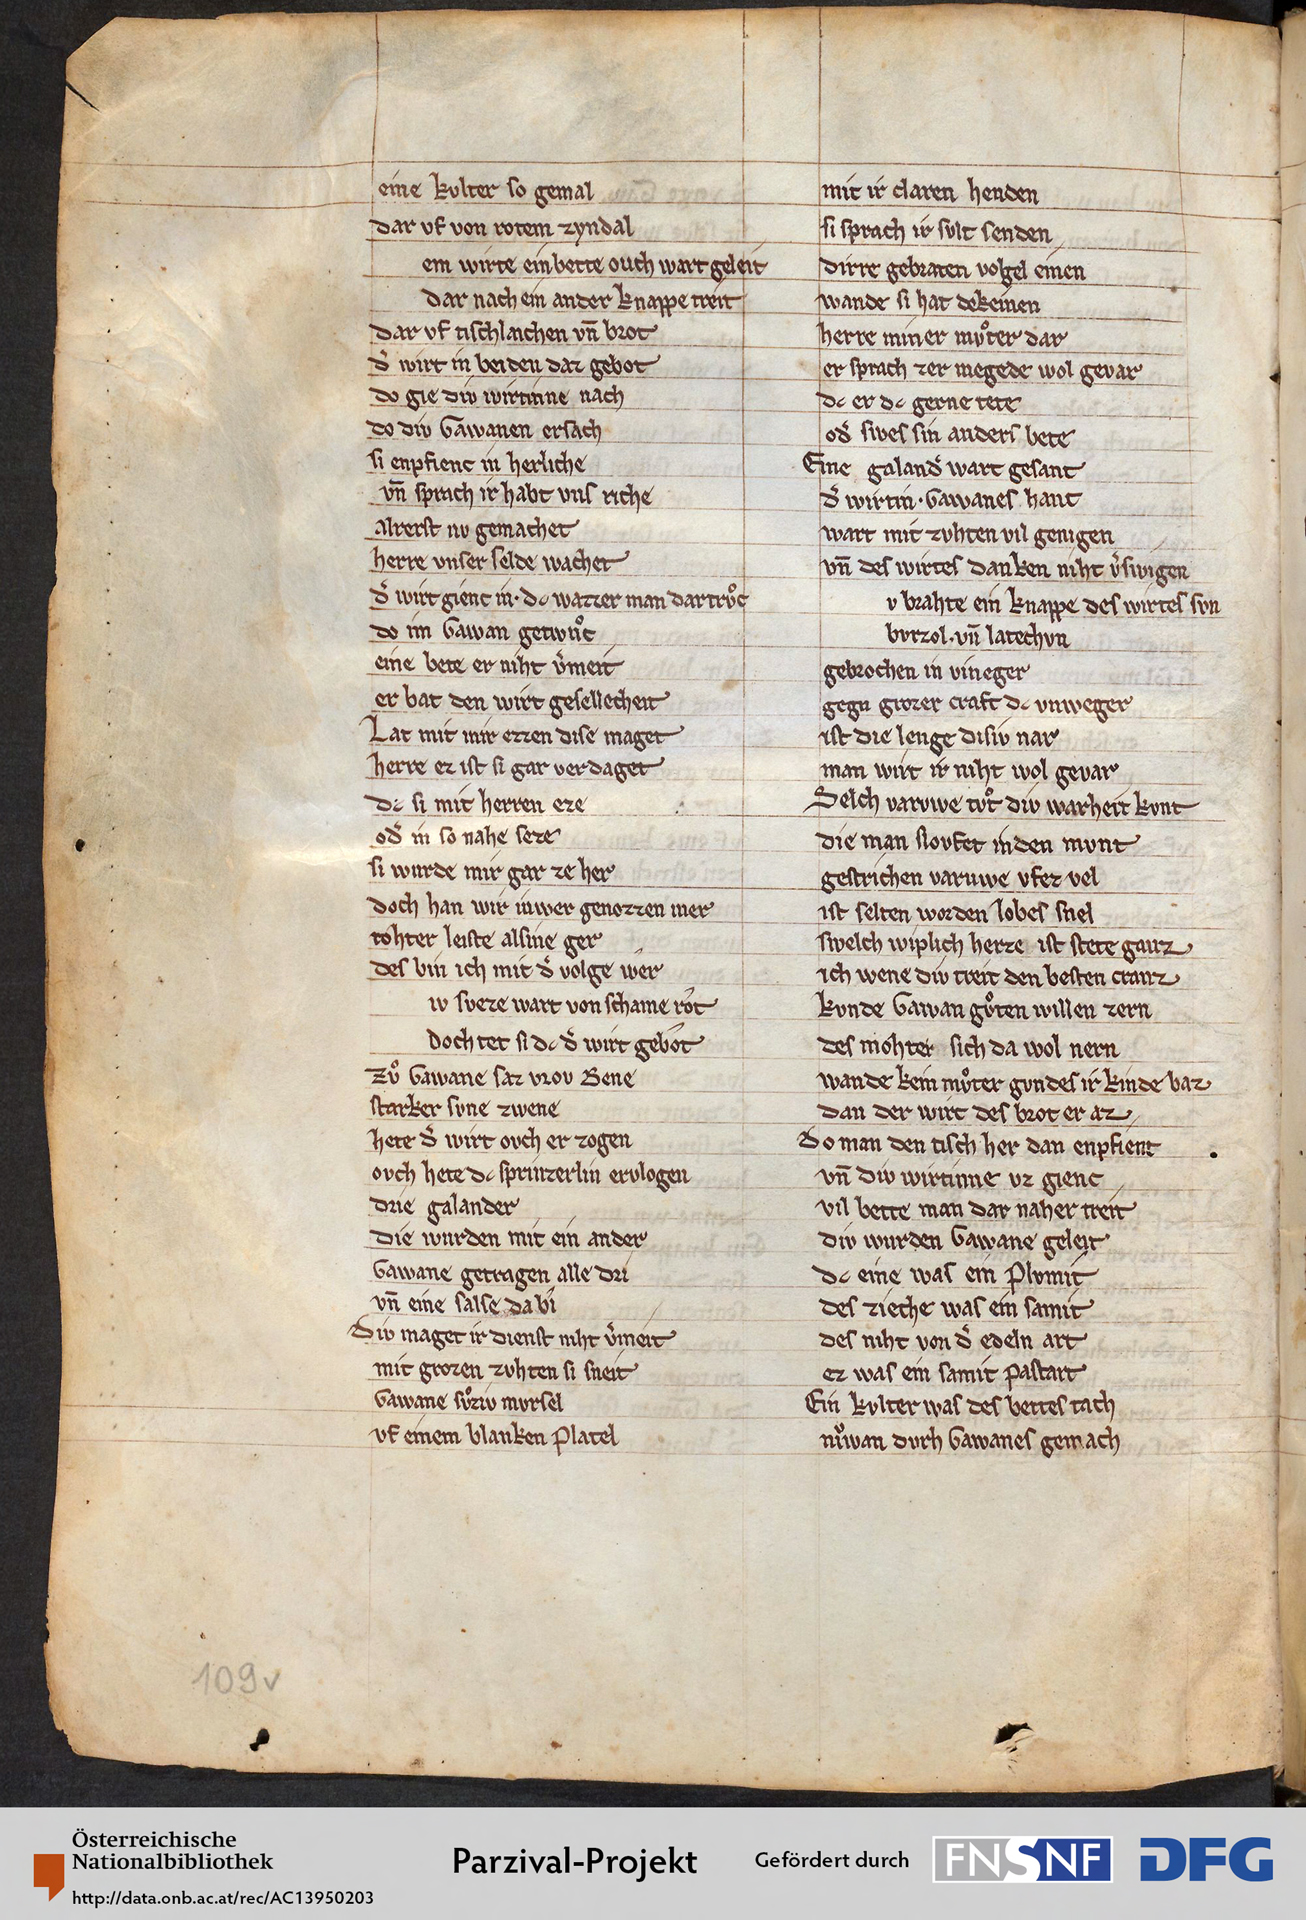 eine kvlter so gemal
dar vf von rotem zyndal
em wirte ein bette ouch wart geleit
dar nach ein ander knappe treit
dar vf tischlachen vn̄ brot
d̓ wirt in beiden daz gebot
do gie div wirtinne nach
do div Gawanen ersach
si enpfienc in herliche
vn̄ sprach ir habt vns riche
alrerst nv gemachet
herre vnser selde wachet
d̓ wirt gienc in · dc wazzer man dar trvͦc
do im Gawan getwuͦc
eine bete er niht v̓meit
er bat den wirt gesellecheit
Lat mit mir ezzen dise maget
herre ez ist si gar verdaget
dc si mit herren eze
od̓ in so nahe seze
si wurde mir gar ze her
doch han wir iuwer genozzen mer
tohter leiste alsine ger
des bin ich mit d̓ volge wer
iv sveze wart von schame rot
doch tet si dc d̓ wirt gebot
Zvͦ Gawane saz vrov Bene
starker svne zwene
hete d̓ wirt ovch er zogen
ovch hete dc sprinzerlin ervlogen
drie galander
die wurden mit ein ander
Gawane getragen alle dri
vn̄ eine salse da bi
Div maget ir dienst niht v̓meit
mit grozen zvhten si sneit
Gawane svͦziv mvrsel
vf einem blanken Platel
mit ir claren henden
si sprach ir svlt senden
dirre gebraten vogel einen
wande si hat dekeinen
herre miner mvͦter dar
er sprach zer megede wol gevar
dc er dc gerne tete
od̓ swes sin anders bete
Eine galand̓ wart gesant
d̓ wirtin · Gawanes hant
wart mit zvhten vil genigen
vn̄ des wirtes danken niht v̓swigen
v brahte ein knappe des wirtes svn
bvrzol · vn̄ latechvn
gebrochen in vineger
gegn grozer craft dc vnweger
ist die lenge disiv nar
man wirt ir niht wol gevar
Selch varuwe tvͦt div warheit kvnt
die man slovfet in den mvnt
gestrichen varuwe vfez vel
ist selten worden lobes snel
swelch wiplich herze ist stete ganz
ich wene div treit den besten cranz
kvnde Gawan gvͦten willen zern
des mohter sich da wol nern
wande kein mvͦter gvndes ir kinde baz
dan der wirt des brot er az
Do man den tisch her dan enpfienc
vn̄ div wirtinne vz gienc
vil bette man dar naher treit
div wurden Gawane geleit
dc eine was ein Plvmit
des zieche was ein samit
des niht von d̓ edeln art
ez was ein samit Pastart
Ein kvlter was des bettes tach
nvͦwan dvrh Gawanes gemach
109v
Österreichische
Nationalbibliothek
http://data.onb.ac.at/rec/AC13950203
Parzival-Projekt
Gefördert durch
FNSNF
DFG